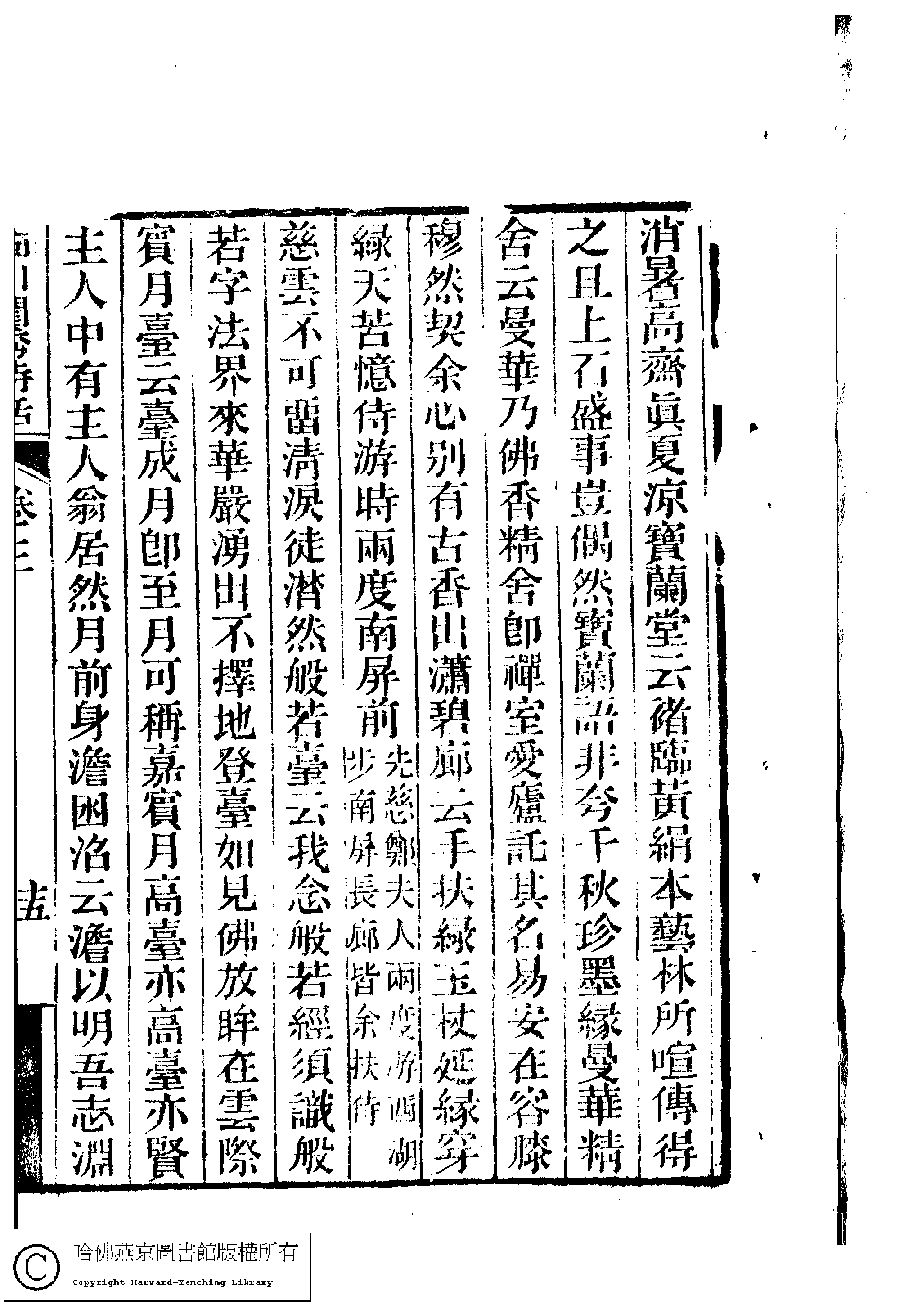 消暑高齋眞夏涼寶蘭堂云褚臨黃絹本藝林所喧傳得
之且上石盛事豈偶然寶蘭語非夸千秋珍墨緣曼華精
舍云曼華乃佛香精舍卽禪室愛廬託其名易安在容膝
穆然契余心别有古香出瀟碧廊云手扶綠玉杖延緣穿
綠天苦憶侍游時兩度南屛前
先慈鄭夫人兩度游西湖
步南屛長廊皆余扶侍
慈雲不可畱淸淚徒潸然般若臺云我念般若經須識般
若字法界來華嚴湧出不擇地登臺如見佛放眸在雲際
賓月臺云臺成月卽至月可稱嘉賓月高臺亦高臺亦賢
主人中有主人翁居然月前身澹囦沼云澹以明吾志淵
園詩話
卷三
十五
哈佛燕京圖書館版權所有
Copyright Harvard-Yenching Library